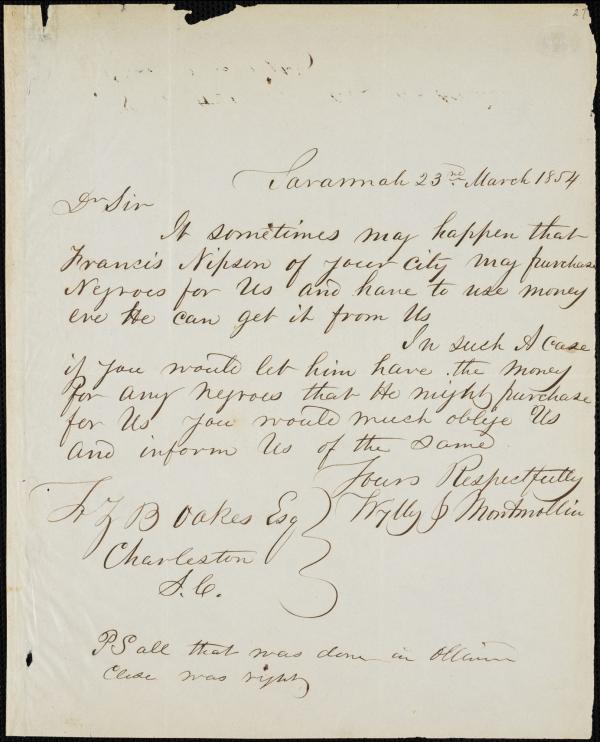 27
Savannah 23rd March 1854
Dr Sir
It sometimes may happen that
Francis Nipson of your city may purchase
Negroes for Us and have to use money
ere He can get it from Us
In such A case
if you would let him have the money
for any negroes that He might purchase
for Us you would much oblije Us
and inform Us of the same
Yours Respectfully
Wylly & Montmollin
Z B Oakes Esq
Charleston
S.C.
PS all that was done in
case was right